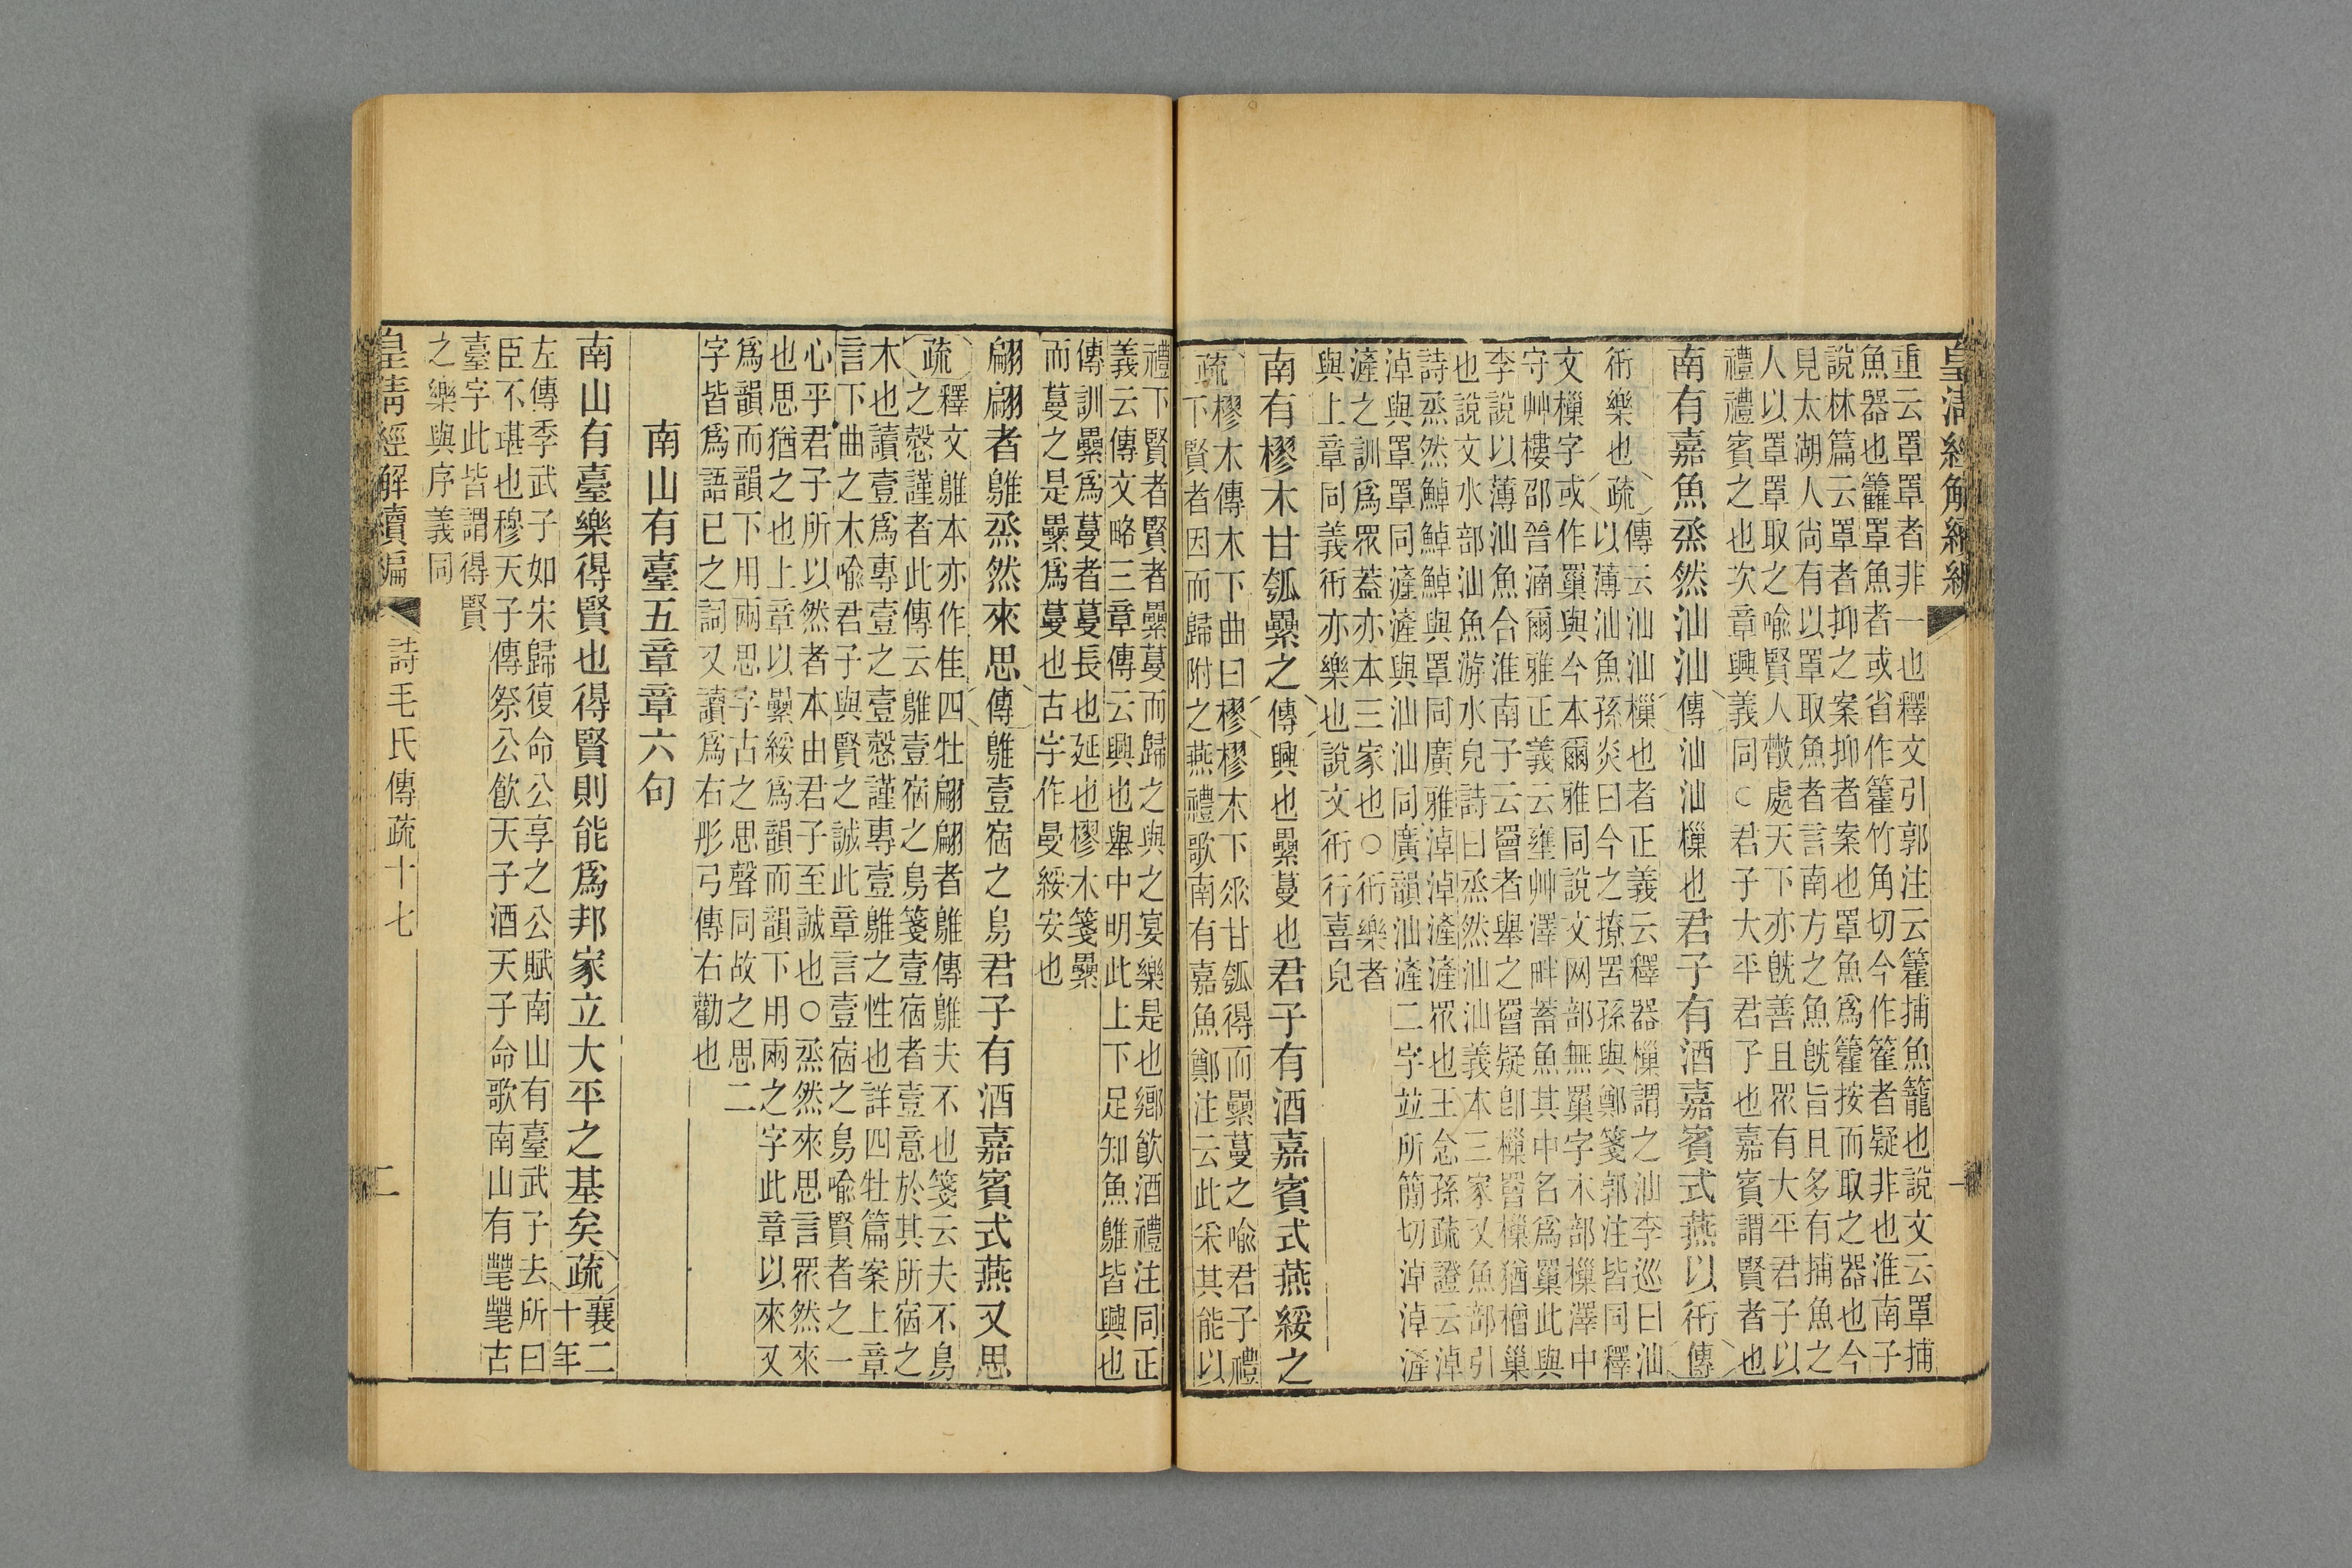 皇清經解續編
重云罩罩者非一也釋文引郭注云籗捕魚籠也說文云罩捕
魚器也籱罩魚者或省作籗竹角切今作篧者疑非也淮南子
說林篇云罩者抑之案抑者案也罩魚爲籗按而取之器也今
見太湖人尙有以罩取魚者言南方之魚旣旨且多有捕魚之
人以罩罩取之喻賢人㪚處天下亦旣善且眾有大平君子以
禮禮賓之也次章興義同○君子大平君子也嘉賓謂賢者也
南有嘉魚烝然汕汕傳汕汕樔也君子有酒嘉賓式燕以衎傳
衎樂也疏傳云汕汕樔也者正義云釋器樔謂之汕李巡曰汕
以薄汕魚孫炎曰今之撩罟孫與鄭箋郭注皆同釋
文樔字或作罺與今本爾雅同說文网部無罺字木部樔澤中
守艸樓邵晉涵爾雅正義云壅艸澤畔蓄魚其中名爲罺此與
李說以薄汕魚合淮南子云罾者舉之罾疑卽樔罾樔猶橧巢
也說文水部汕魚游水皃詩曰烝然汕汕義本三家又魚部引
詩烝然鯙鯙與罩同廣雅淖淖滻滻眾也王念孫疏證云淖
淖與罩罩同滻滻與汕汕同廣韻汕滻二字竝所簡切淖淖滻
滻之訓爲眾蓋亦本三家也○衎樂者
與上章同義衎亦樂也說文衎行喜皃
南有樛木甘瓠纍之傳興也纍蔓也君子有酒嘉賓式燕綏之
疏樛木傳木下曲曰樛樛木下垂甘瓠得而纍蔓之喻君子禮
下賢者因而歸附之燕禮歌南有嘉魚鄭注云此采其能以
禮下賢者賢者纍蔓而歸之與之宴樂是也鄉飮酒禮注同正
義云傳文略三章傳云興也舉中明此上下足知魚鵻皆興也
傳訓纍爲蔓者蔓長也延也樛木箋纍
而蔓之是纍爲蔓也古字作曼綏安也
翩翩者鵻烝然來思傳鵻壹宿之鳥君子有酒嘉賓式燕又思
疏釋文鵻本亦作隹四牡翩翩者鵻傳鵻夫不也箋云夫不鳥
之慤謹者此傳云鵻壹宿之鳥箋壹宿者壹意於其所宿之
木也讀壹爲專壹之壹慤謹專壹鵻之性也詳四牡篇案上章
言下曲之木喻君子與賢之誠此章言壹宿之鳥喻賢者之一
心乎君子所以然者本由君子至誠也○烝然來思言眾然來
也思猶之也上章以纍綏爲韻而韻下用兩之字此章以來又
爲韻而韻下用兩思字古之思聲同故之思二
字皆爲語已之詞又讀爲右彤弓傳右勸也
南山有臺五章章六句
南山有臺樂得賢也得賢則能爲邦家立大平之基矣疏襄二
十年
左傳季武子如宋歸復命公享之公賦南山有臺武子去所曰
臣不堪也穆天子傳祭公飮天子酒天子命歌南山有䔲䔲古
臺字此皆謂得賢
之樂與序義同
皇清經解續編 詩毛氏傳疏十七 二